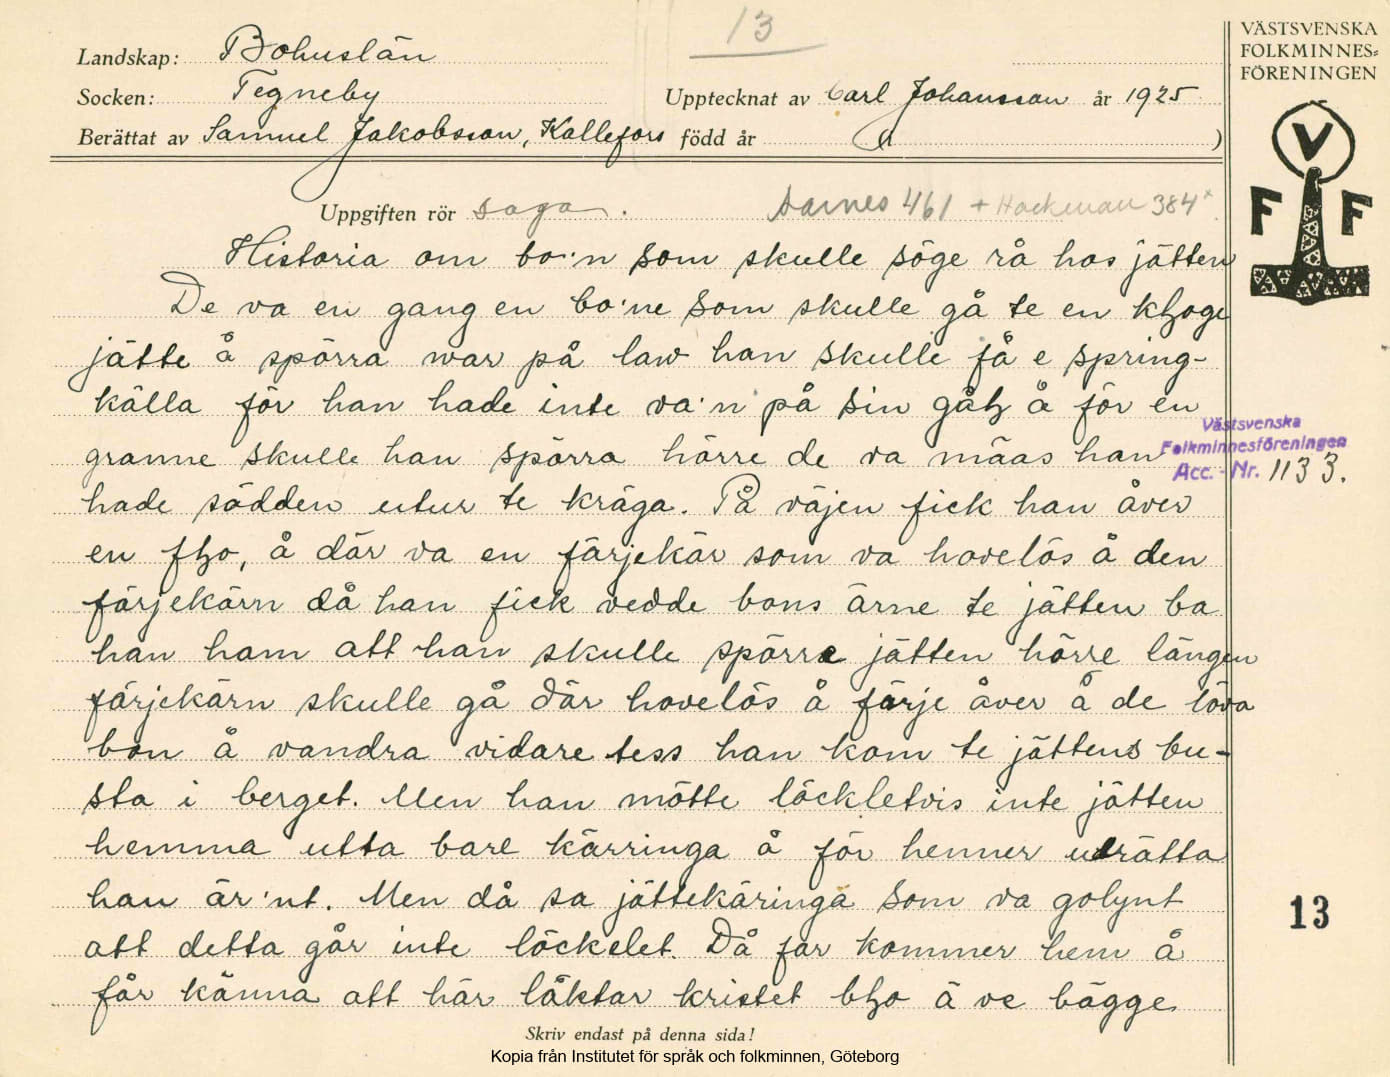 13
Landskap: Bohuslän
Socken: Tegneby
Upptecknat av Carl Johansson år 1925
Berättat av Samuel Jakobsson, Kallefors född år ( )
VÄSTSVENSKA
FOLKMINNES-
FÖRENINGEN
V
F F
Uppgiften rör saga. Aarnes 461 + Hackman 384x
Historia om bo:n som skulle söge rå hos jätten
De va en gang en bo'ne som skulle gå te en kloge
jätte å spörra war på law han skulle få e spring-
källa för han hade inte va'n på sin gål å för en
granne skulle han spörra hörre de va mäas han
hade sädden utur te kräga. På väjen fick han åver
en flo, å där va en färjekär som va hovelös å den
färjekärn då han fick vedde bons ärne te jätten ba
han ham att han skulle spörra jätten hörre längen
färjekärn skulle gå där hovelös å färje åver å de löva
bon å vandra vidare tess han kom te jättens bu-
sta i berget. Men han mötte löckletvis inte jätten
hemma utta bare kärringa å för henner uträtta
han är'nt. Men då sa jättekäringa som va golynt
att detta går inte löckelet. Då far kommer hem å
får känna att här låktar kristet blo ä ve bägge
Västsvenska
Folkminnesföreningen
Acc. - Nr. 1133.
13
Skriv endast på denna sida!
Kopia från Institutet för språk och folkminnen, Göteborg